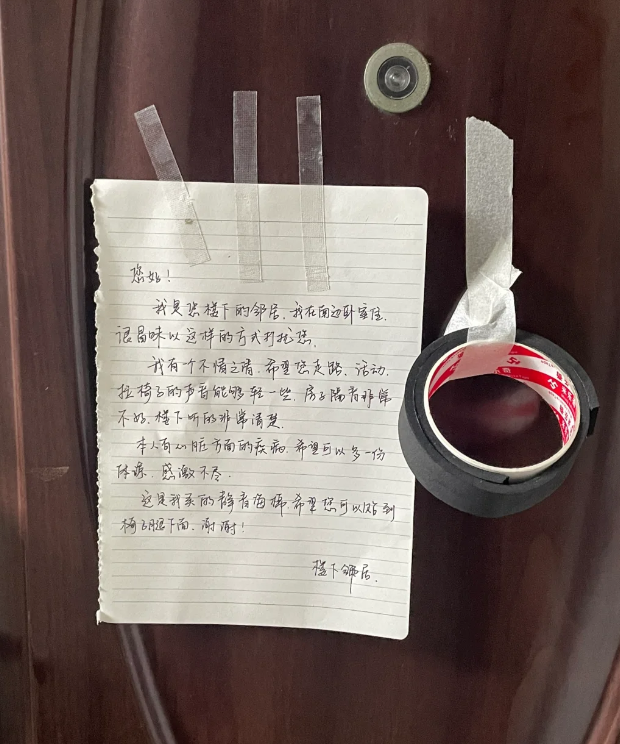 您好!
我是您楼下的邻居,我在南边卧室住.
很冒昧以这样的方式打扰您.
我有个不情之请,希望您走路、活动、
拉椅子的声音能够轻一些,房子隔音非常
不好,楼下听的非常清楚.
本人有心脏方面的疾病,希望可以多一份
体谅.感激不尽.
这是我买的静音海绵,希望您可以贴到
椅子腿下面,谢谢!
楼下邻居.